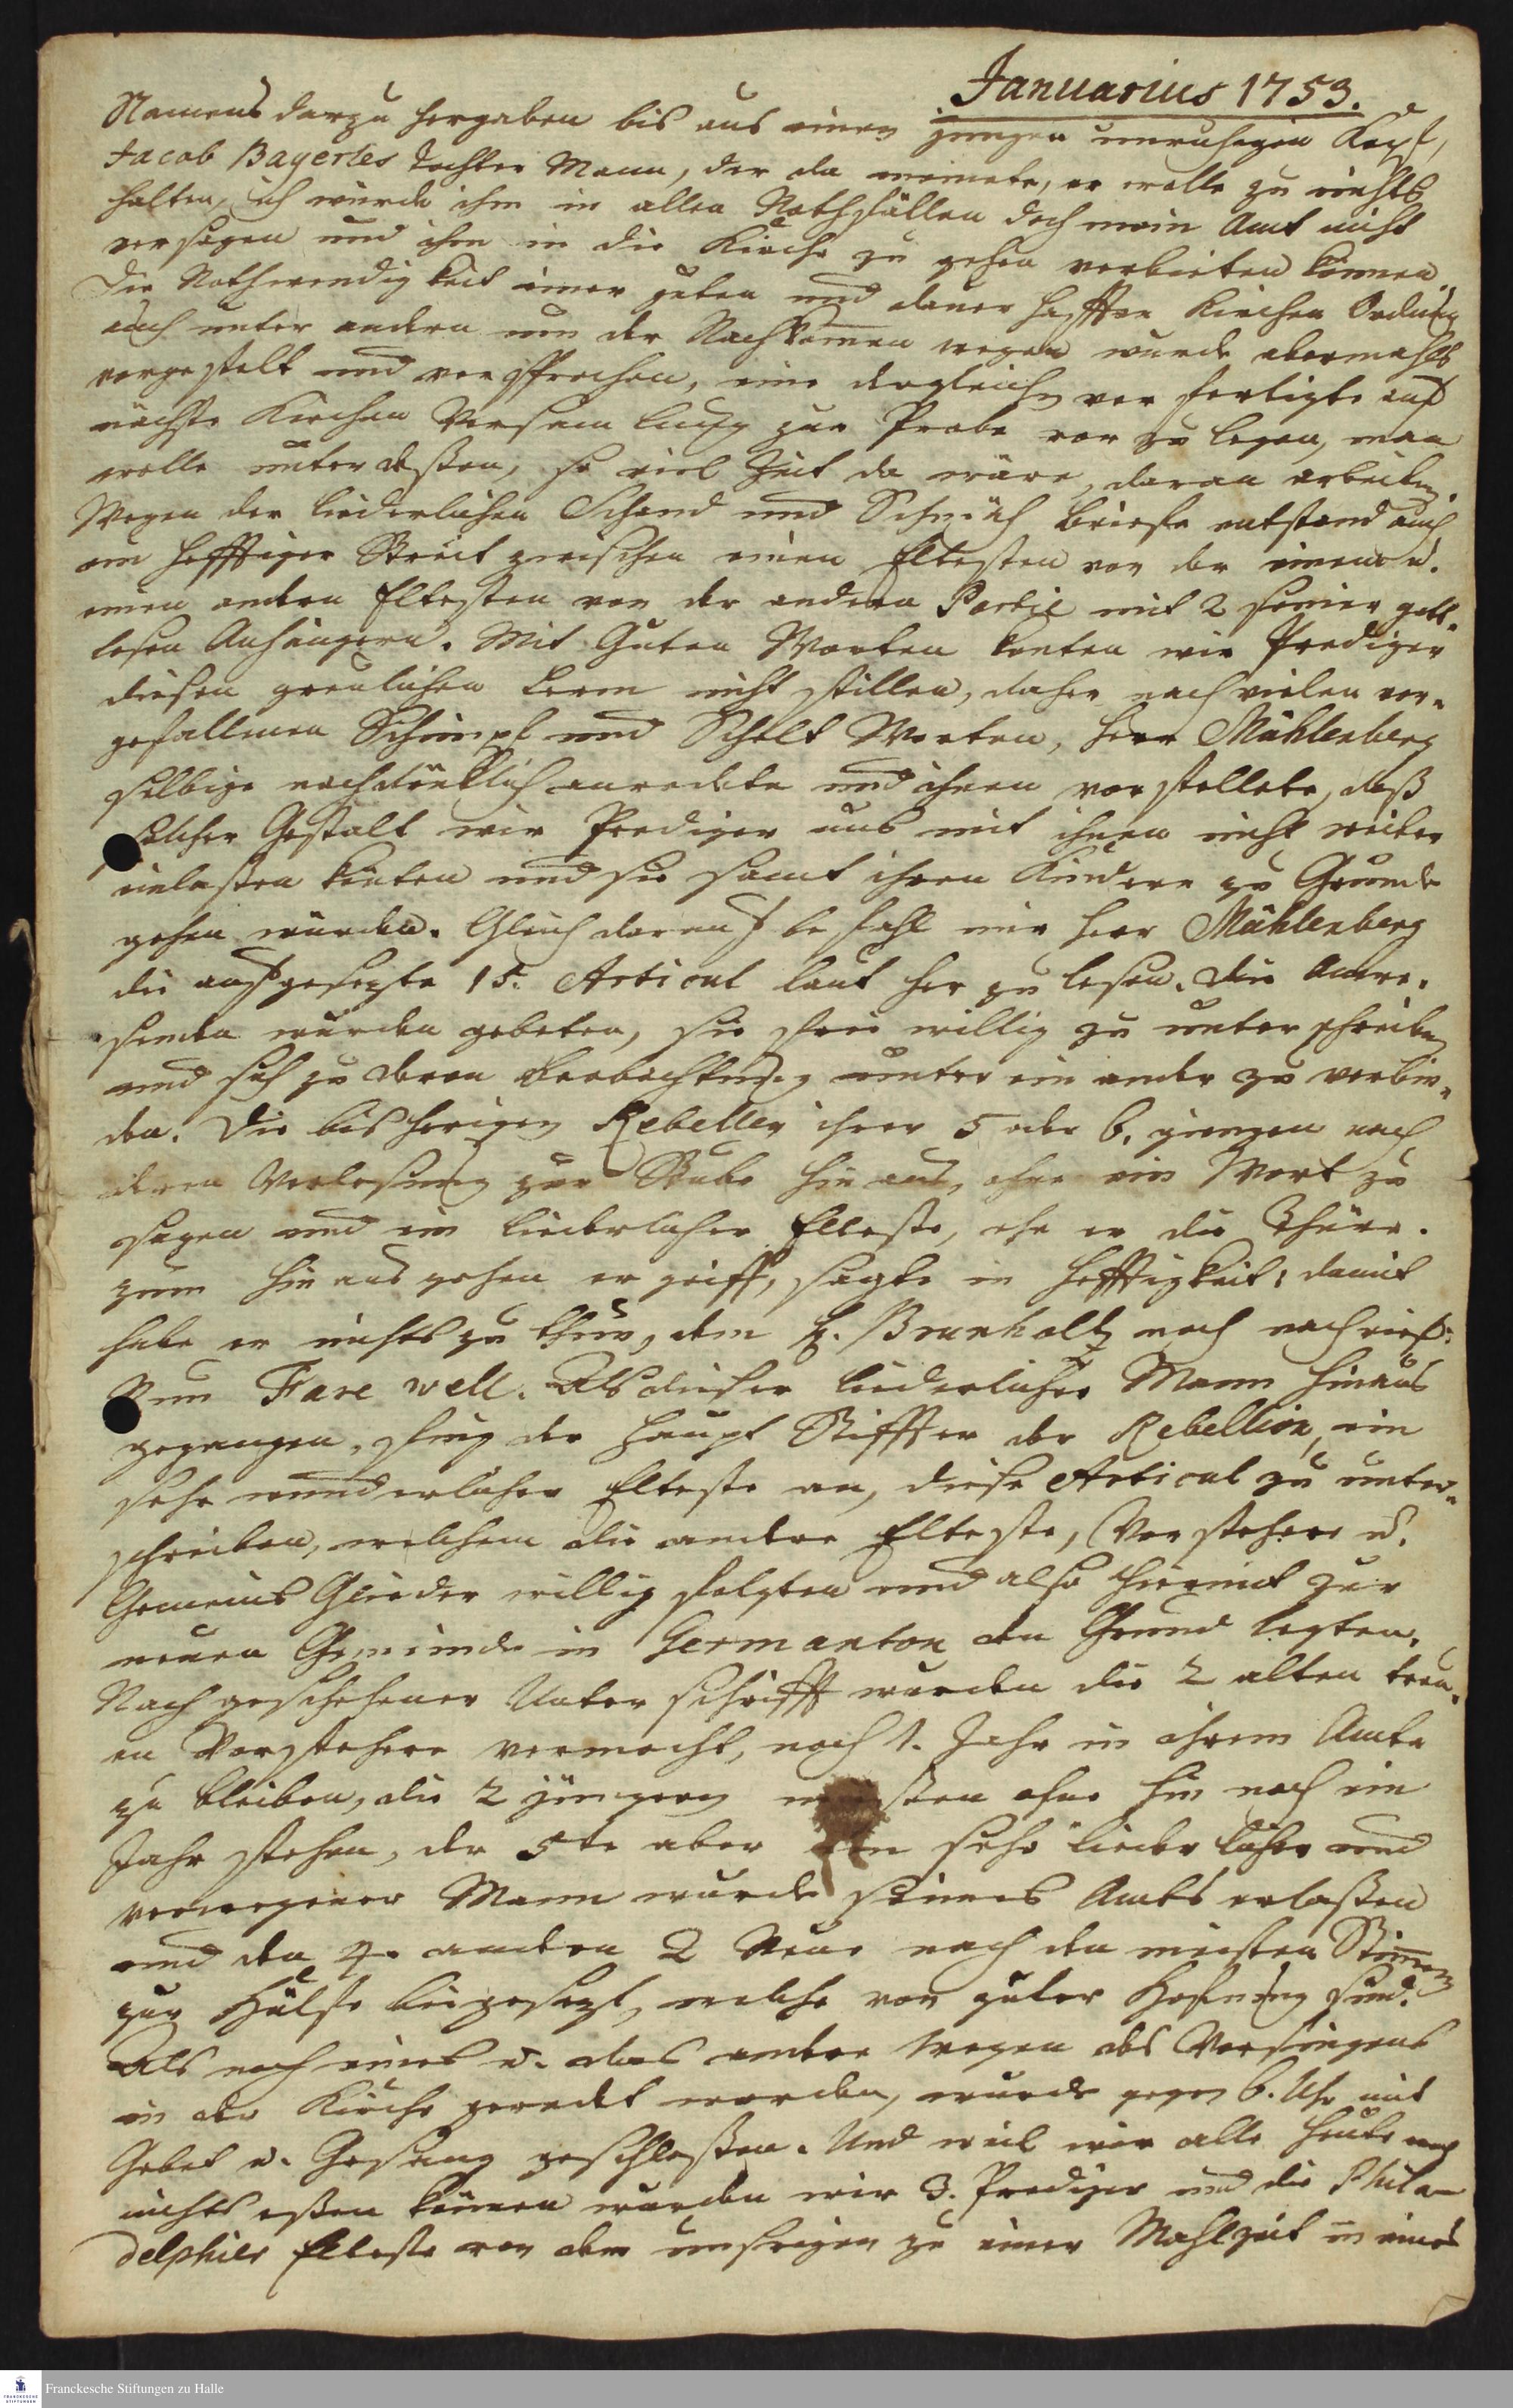 Januarius 1753.
Namens darzu hergaben bis aus einen jungen unruhigen Kopf,
Jacob Bayertes Tochter Mann, der da meinete, er wolle zu nichts
halten, ich würde ihm in allen Nothfällen doch mein Amt nicht
versagen und ihm in die Kirche zu gehen verbieten können.
Die Nothwendigkeit einer guten und dauerhafften Kirchen Ordnung
auch unter andern um der Nachkommen wegen wurde abermahls
vorgestelt und versprochen, eine dergleichen verfertigte auf
nächste Kirchen Versamlung zur Probe vor zu legen, man
wolle unterdeßen, so viel Zeit da wäre, daran arbeiten.
Wegen der liederlichen Schand und Schmäh briefe entstand auch
ein hefftiger Streit zwischen einen Eltesten von der einen u.
einen andern Eltesten von der andern Partie mit 2 seiner gott-
losen Anhängern. Mit Guten Worten konten wir Prediger
diesen greulichen Lerm nicht stillen, daher nach vielen vor-
gefallenen Schimpf und Schelt Worten, Herr Mühlenberg
selbige nachdrücklich anredete und ihnen vorstellete, daß
solcher Gestalt wir Prediger uns mit ihnen nicht weiter
einlaßen könten und sie samt ihren Kindern zu Grunde
gehen würden. Gleich darauf befahl mir Herr Mühlenberg
die aufgesezte 15. Articul laut her zu lesen. Die Anwe-
senden wurden gebeten, sie frei willig zu unterschreiben
und sich zu deren Beobachtung unter ein ander zu verbin-
den. Die bisherigen Rebellen ihrer 5 oder 6. giengen nach
deren Verlesung zur Stube hinaus, ohne ein Wort zu
sagen und ein liederlicher Elteste, ehe er die Thüre
zum hinaus gehen ergriff, sagte in Hefftigkeit: damit
habe er nichts zu thun, dem H. Brunholtz noch nachrief:
Nun Fare well. Als dieser liederlicher Mann hinaus
gegangen, fing der Haupt Stiffter der Rebellion, ein
sehr wunderlicher Elteste an, diese Articul zu unter-
schreiben, welchem die andere Elteste, Vorstehere u.
Gemeins Glieder willig folgten und also hiermit zur
neuen Gemeinde in Germanton den Grund legten.
Nach geschehener Unterschrifft wurden die 2 alten treu-
en Vorstehere vermocht, noch 1. Jahr in ihrem Amte
zu bleiben, die 2 jüngern musten ohne hin noch ein
Jahr stehen, der 5te aber ein sehr liederlicher und
verwegener Mann wurde seines Amts erlaßen
und den 4. andern 2 Neue nach den meisten Stimmen
zur Hülfe beigesezt, welche von guter Hofnung sind.
Als noch eines u. das andere wegen des Vorsingens
in der Kirche geredet worden, wurde gegen 6. Uhr mit
Gebet u. Gesang geschloßen. Und weil wir alle heute noch
nichts eßen können wurden wir 3. Prediger und die Phila-
delphier Elteste von den unsrigen zu einer Mahlzeit in eines
Franckesche Stiftungen zu Halle
FRANCKESCHE
STIFTUNGEN